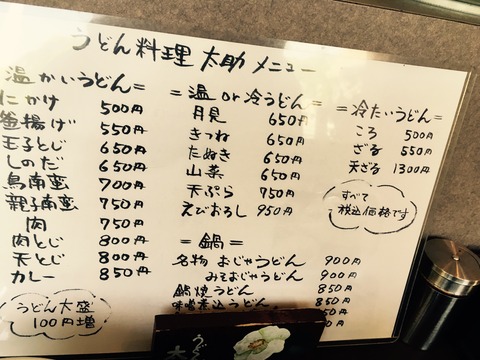 うどん料理 太助 メニュー
=温かいうどん=
にかけ 500円
釜揚げ 550円
玉子とじ 650円
しのだ 650円
鳥南蛮 700円
親子南蛮 750円
肉 750円
肉とじ 800円
天とじ 800円
カレー 850円
うどん大盛
100円増
=温or冷うどん=
月見 650円
きつね 650円
たぬき 650円
山菜 650円
天ぷら 750円
えびおろし 950円
=鍋=
名物 おじゃうどん 900円
みそおじゃうどん 900円
鍋焼うどん 850円
味噌煮込うどん 850円
=冷たいうどん=
ころ 500円
ざる 550円
天ざる 1300円
すべて
税込価格です